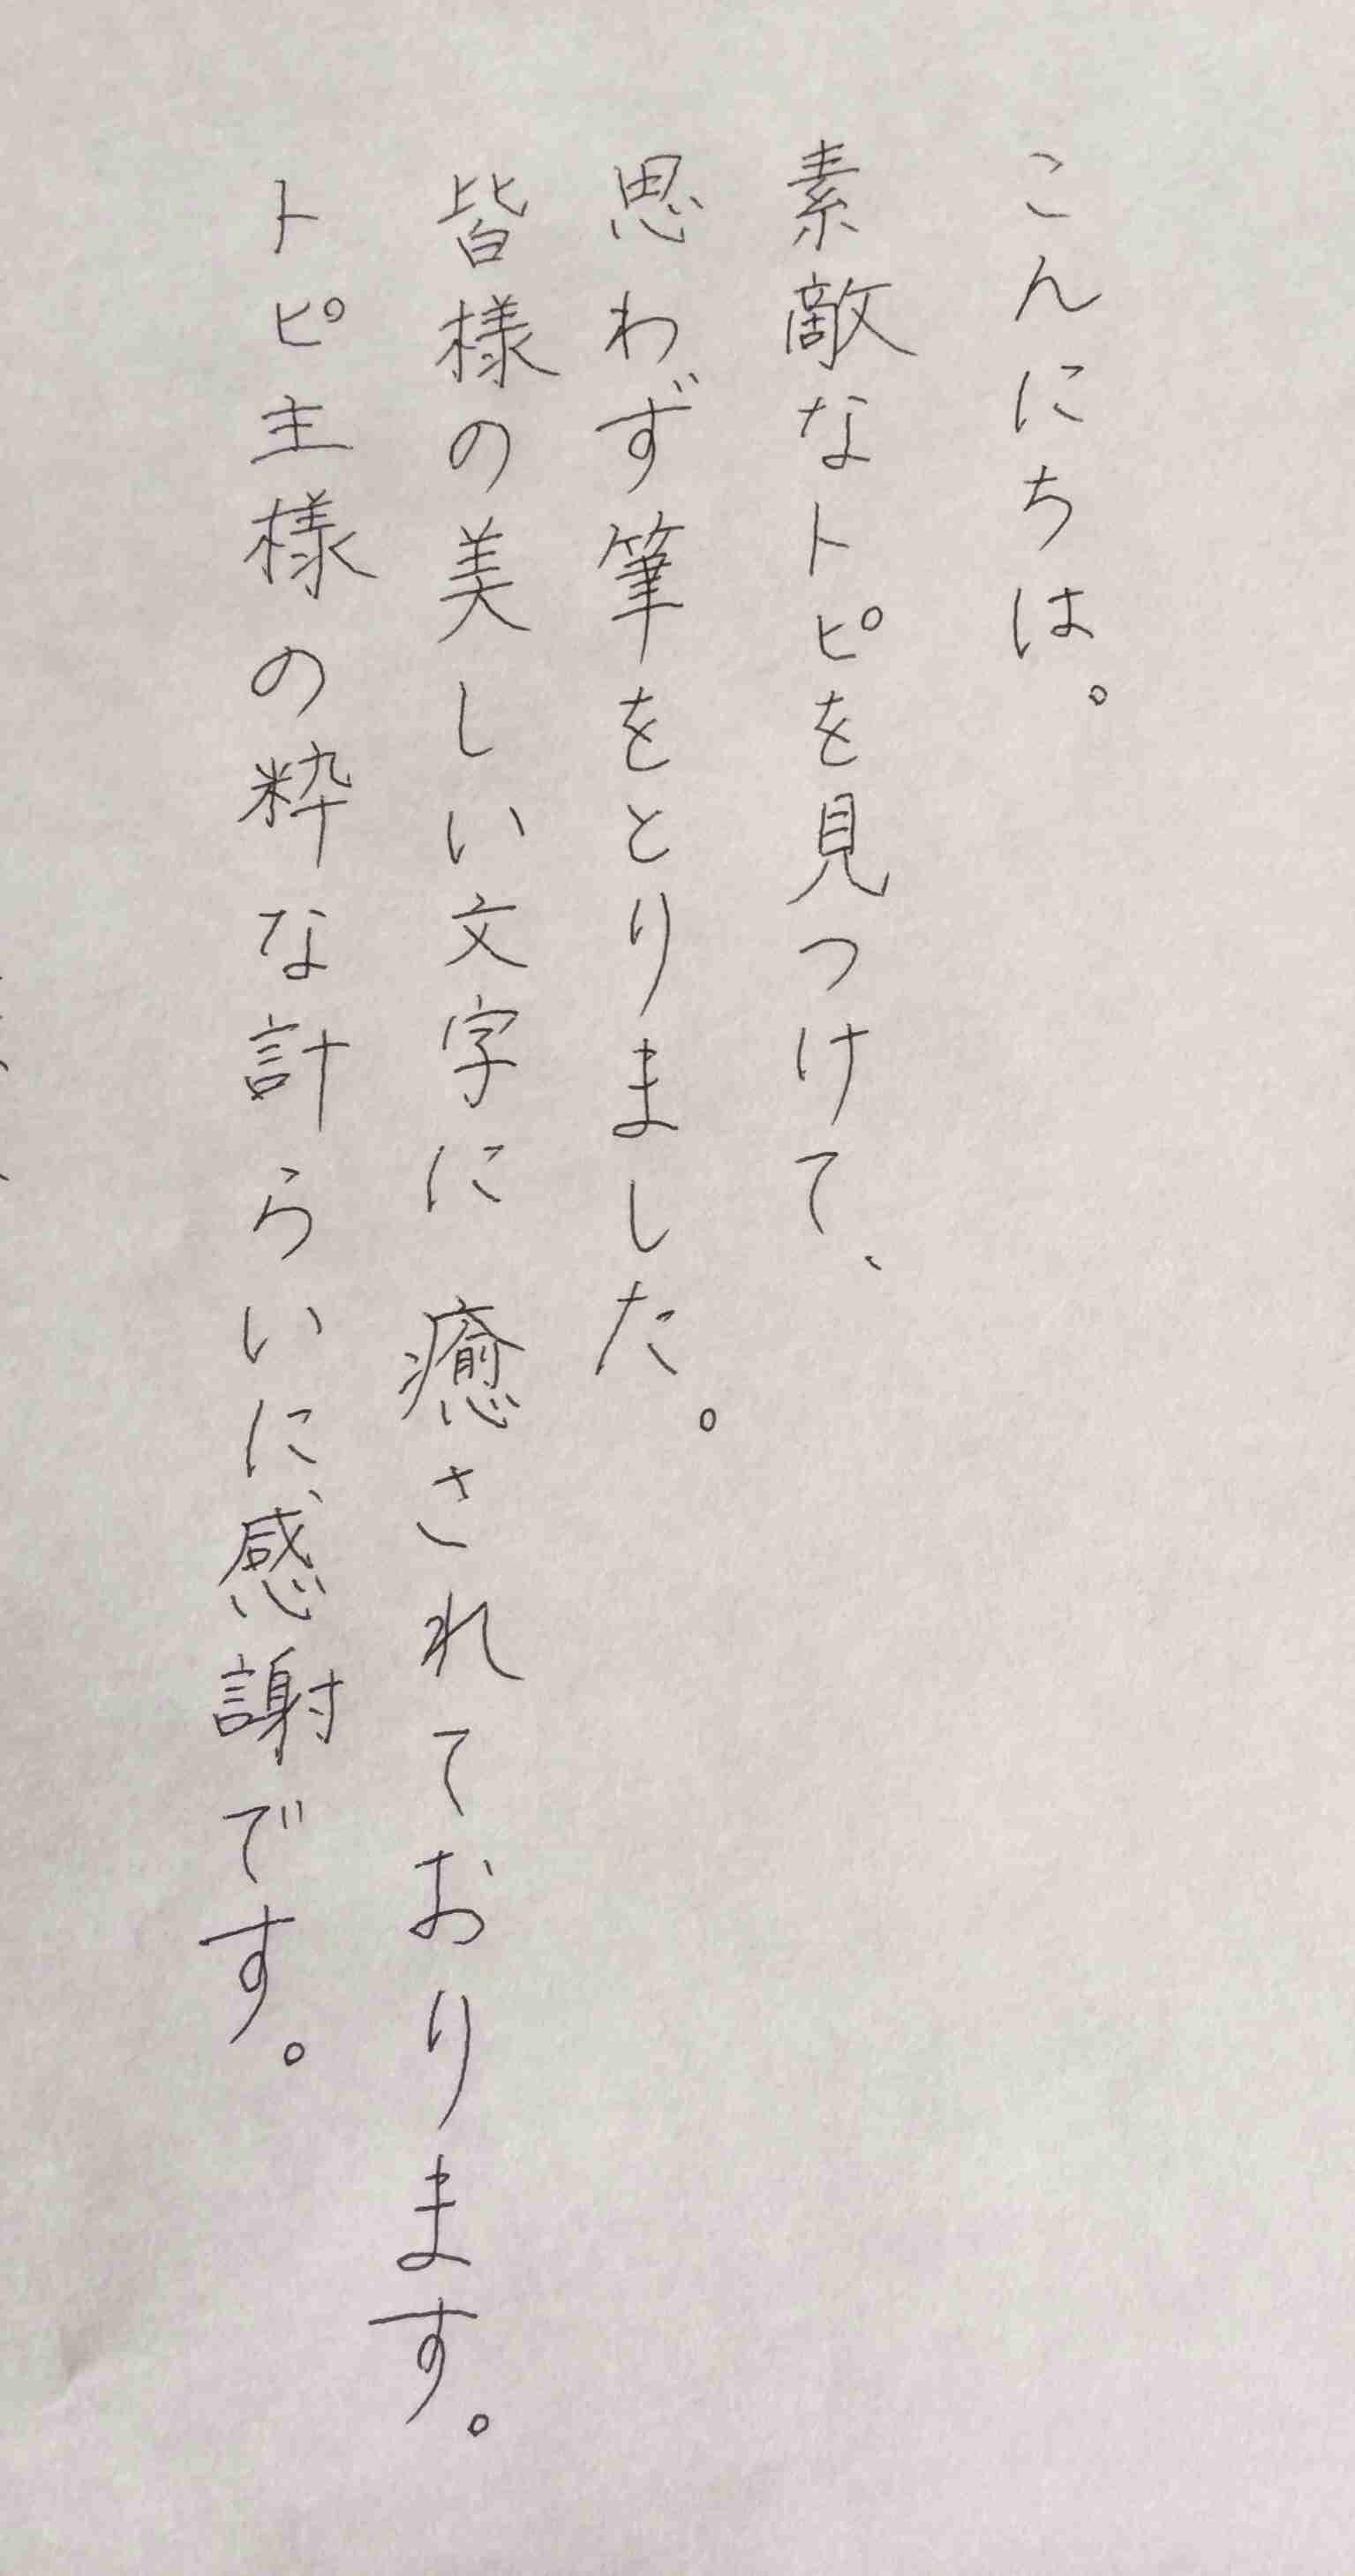 こんにちは。
素敵なトピを見つけて、
思わず筆をとりました。
皆様の美しい文字に癒されております。
トピ主様の粋な計らいに、感謝です。